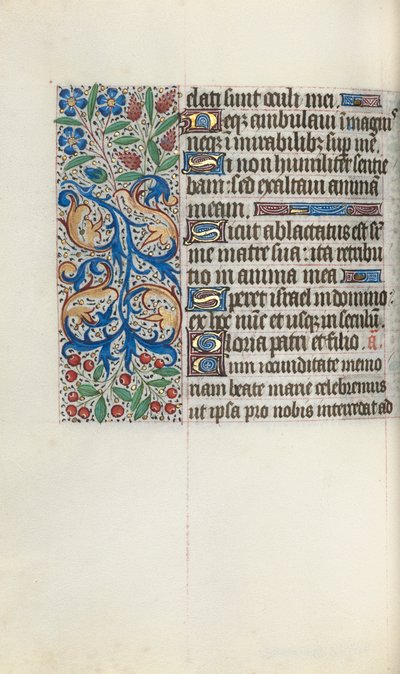 elati sunt oculi mei.
Neq̃ ambulaui ĩ magnis
neq̃ ĩ mirabilibꝫ sup me.
Si non humiliter sentie
bam: sed exaltaui anima
meam.
Sicut ablactatus est sr̃
me matre sua: ita retribu
tio in anima mea.
Speret israel in domino:
ex hoc nũc et usq̃ in seculũ.
Gloria patri et filio. a
Cum iocunditate memo
riam beate marie celebremus
ut ipsa pro nobis intercedat ad